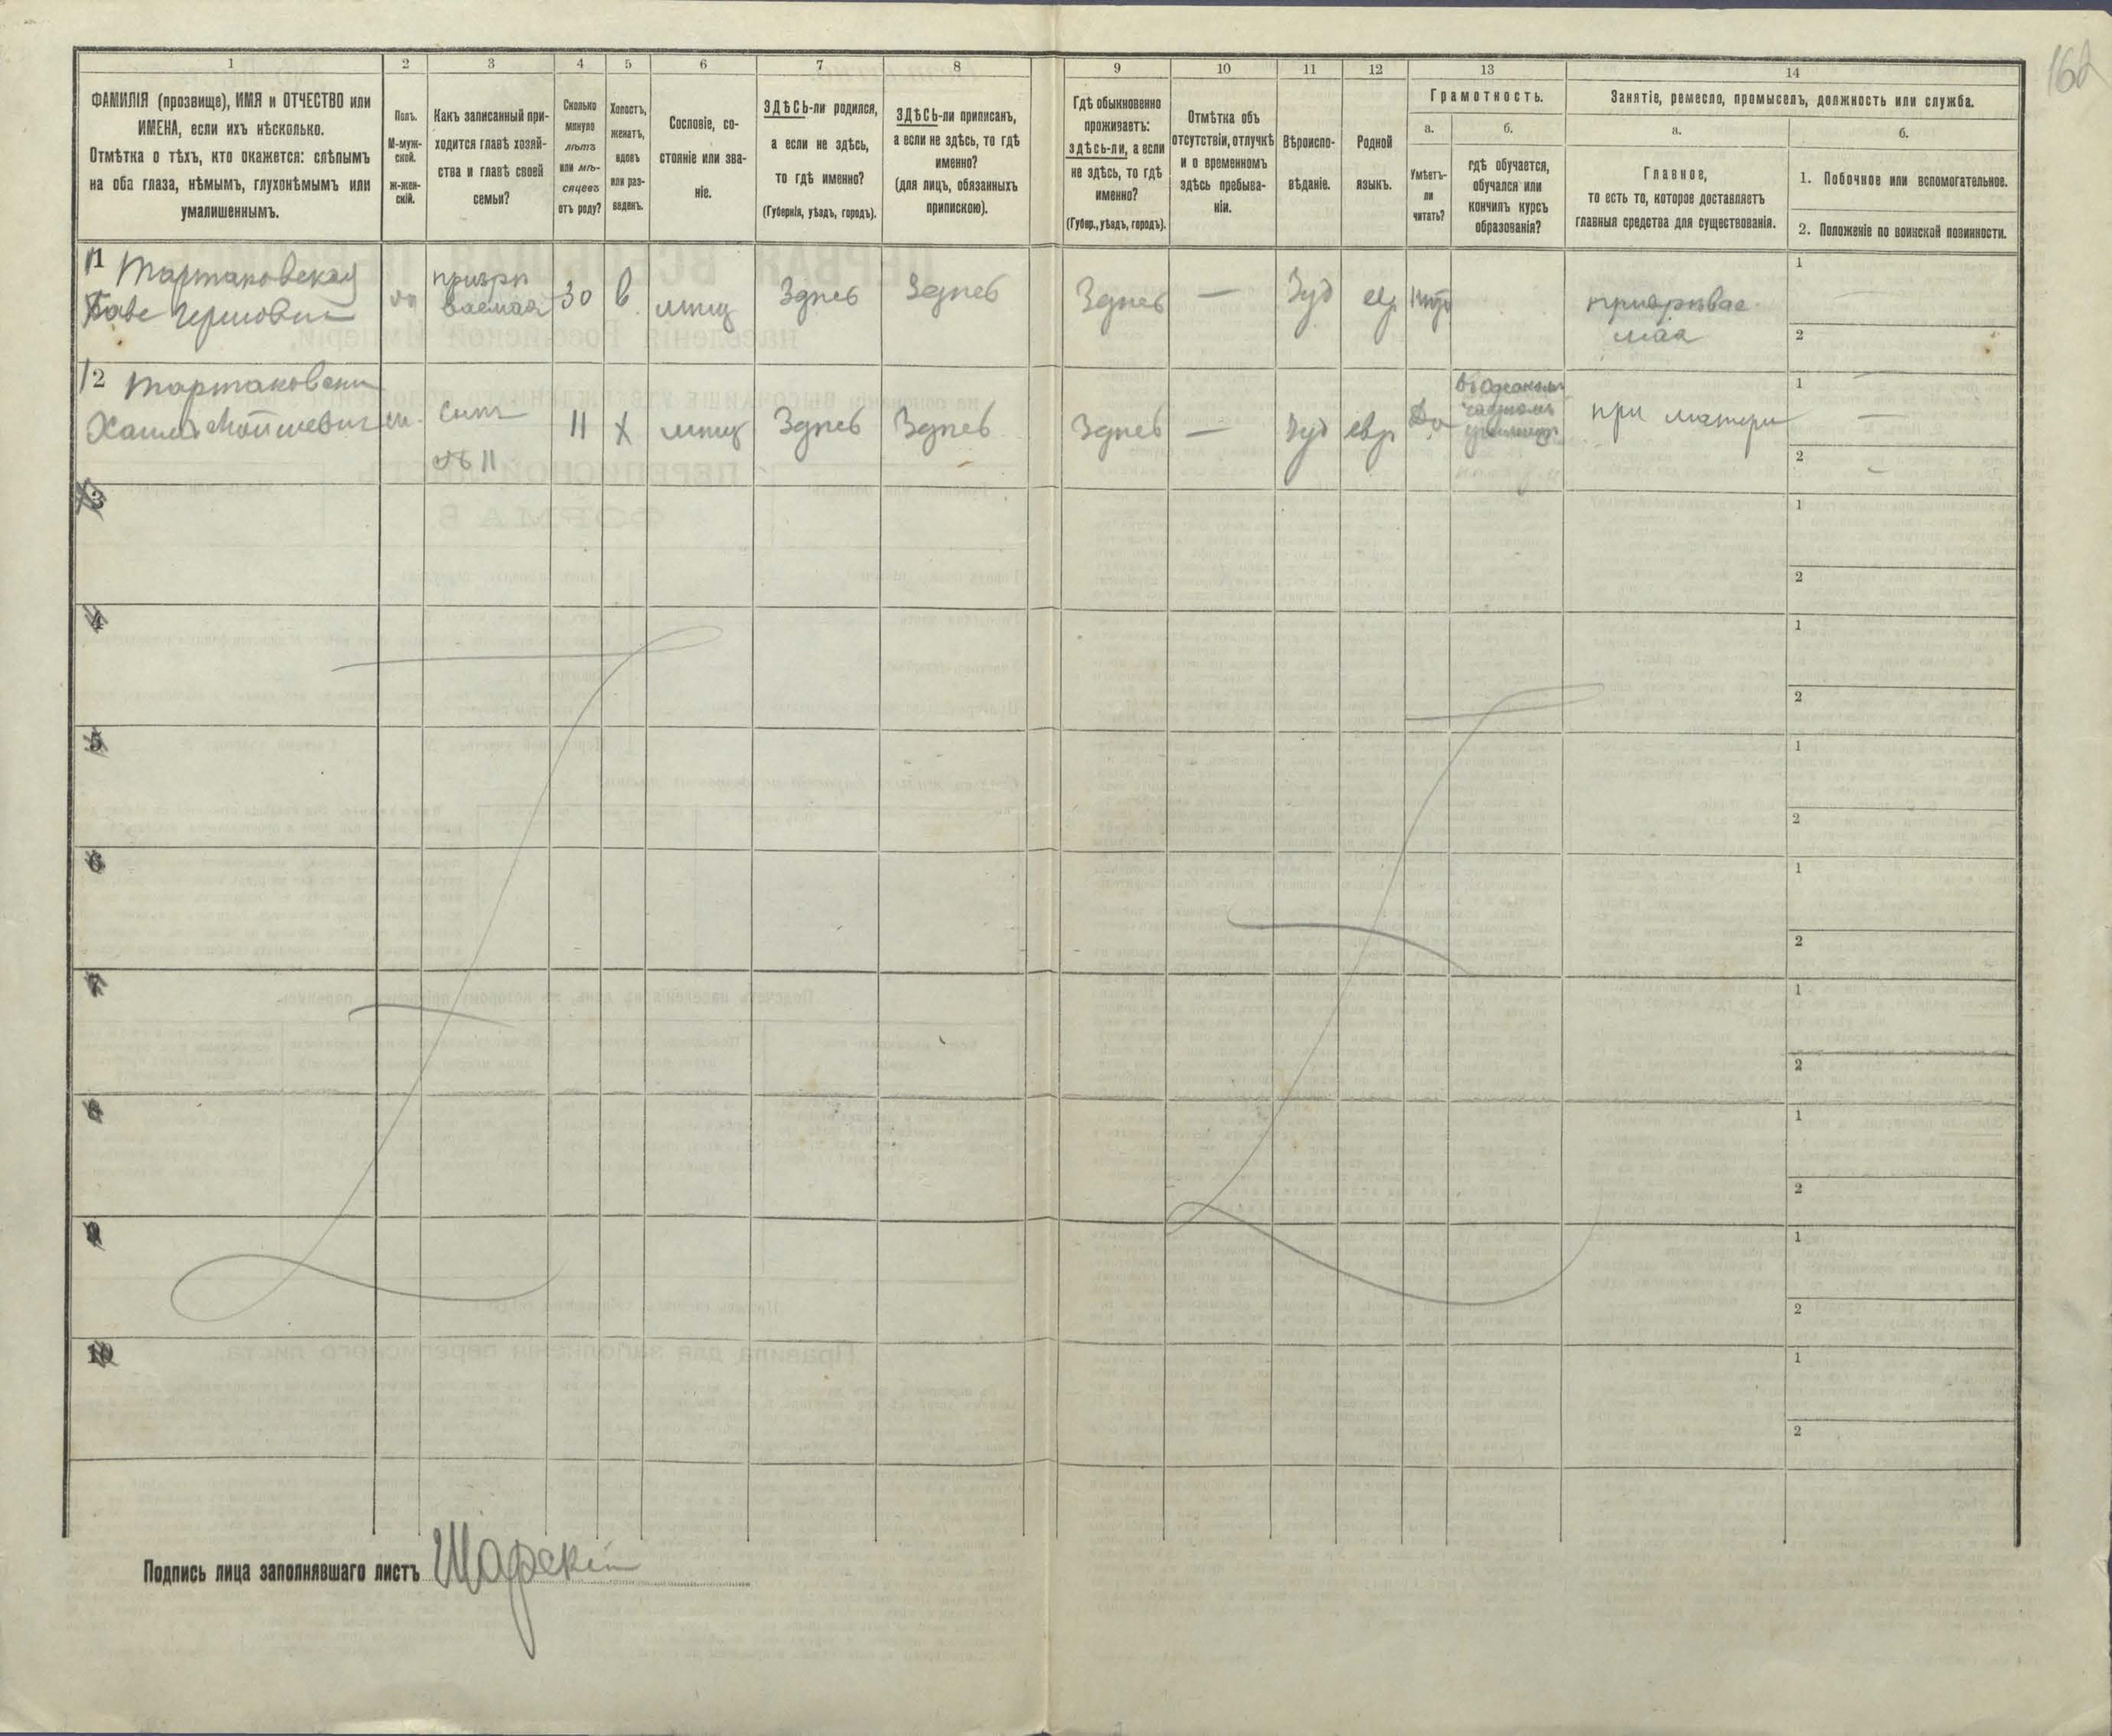 162
1
ФАМИЛІЯ (прозвище), ИМЯ и ОТЧЕСТВО или
ИМЕНА, если ихъ нѣсколько.
Отмѣтка о тѣхъ, кто окажется: слѣпымъ
на оба глаза, нѣмымъ, глухонѣмымъ или
умалишеннымъ.
2
Полъ.
М-муж-
ской.
ж-жен-
скій.
3
Какъ записанный при-
ходится главѣ хозяй-
ства и главѣ своей
семьи?
4
Сколько
минуло
лѣтъ
или мѣ-
сяцевъ
отъ роду?
5
Холостъ,
женатъ,
вдовъ
или раз-
веденъ.
6
Сословіе, со-
стояніе или зва-
ніе.
7
ЗДѢСЬ-ли родился,
а если не здѣсь,
то гдѣ именно?
(Губернія, уѣздъ, городъ).
8
ЗДѢСЬ-ли приписанъ,
а если не здѣсь, то гдѣ
именно?
(для лицъ, обязанныхъ
припискою).
9
Гдѣ обыкновенно
проживаетъ:
здѣсь-ли, а если
не здѣсь, то гдѣ
именно?
(Губер., уѣздъ, городъ).
10
Отмѣтка объ
отсутствіи, отлучкѣ
и о временномъ
здѣсь пребыва-
ніи.
11
Вѣроиспо-
вѣданіе.
12
Родной
языкъ.
13
Грамотность.
а.
Умѣетъ-
ли
читать?
б.
гдѣ обучается,
обучался или
кончилъ курсъ
образованія?
14
Занятіе, ремесло, промыселъ, должность или служба.
а.
Главное,
то есть то, которое доставляетъ
главныя средства для существованія.
б.
1. Побочное или вспомогательное.
2. Положеніе по воинской повинности.
11 Тартаковская
призрѣ
ваемая
30
в
мѣщ
Здѣсь
Здѣсь
Здѣсь
—
Іуд
евр
нѣтъ
призрѣвае-
мая
1
2
12 Тартаковскій
Хаимъ Мошковичъ
м.
сынъ
№ 11
11
х
мѣщ
Здѣсь
Здѣсь
Здѣсь
—
Іуд
евр
Да
при матери
1 —
2 -
3
1
2
4
1
2
5
1
2
6
1
2
7
1
2
8
1
2
9
1
2
10
1
2
Подпись лица заполнявшаго листъ Шарскій